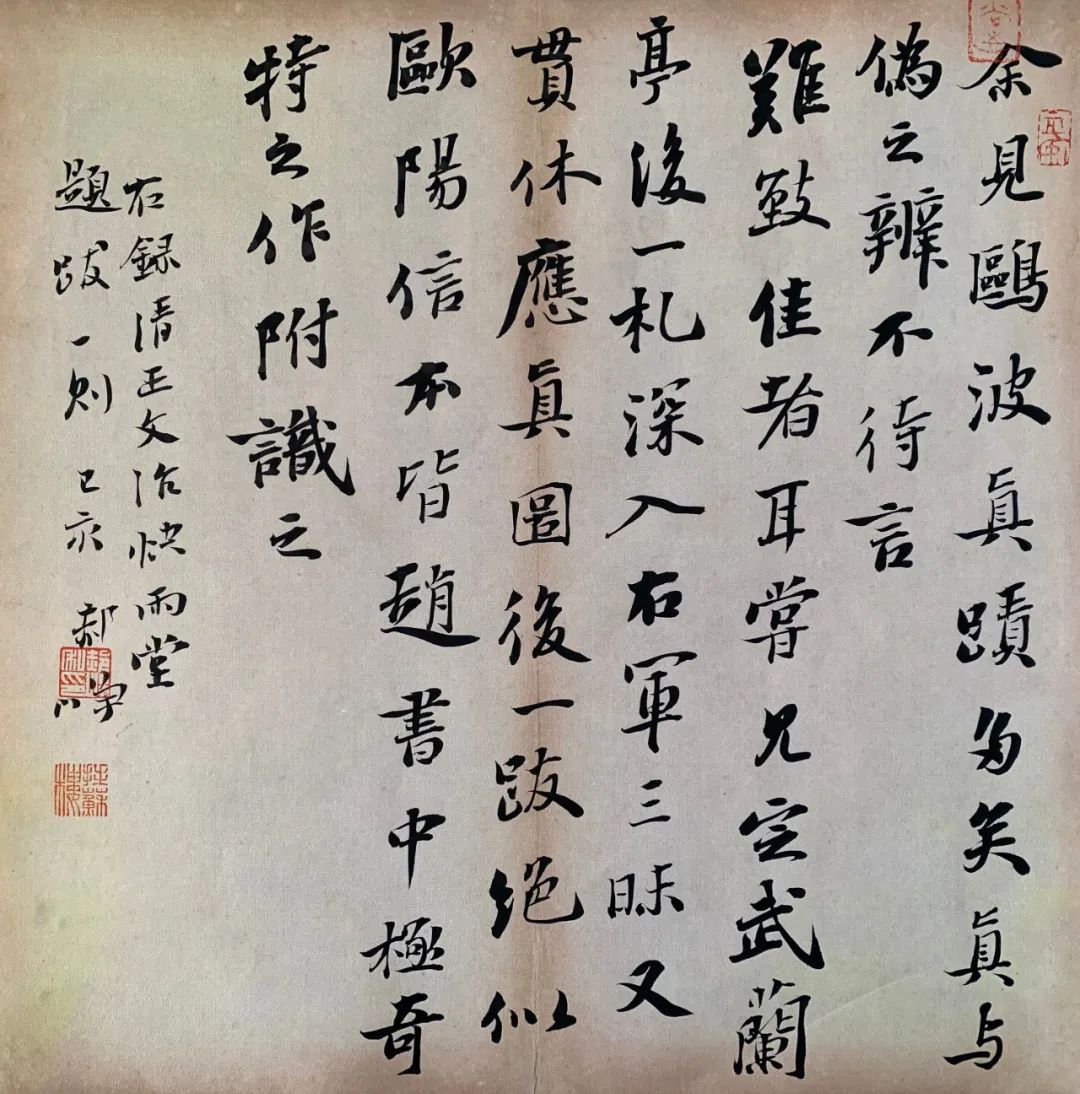 余見鷗波眞蹟多矣眞与
偽之辨不待言
難佳者耳嘗見定武蘭
亭後一札深入右軍三昧又
貫休應眞圖後一跋絶似
歐陽信本皆趙書中極奇
特之作附識之
右録清王文治快雨堂
題跋一則 己亥 郝